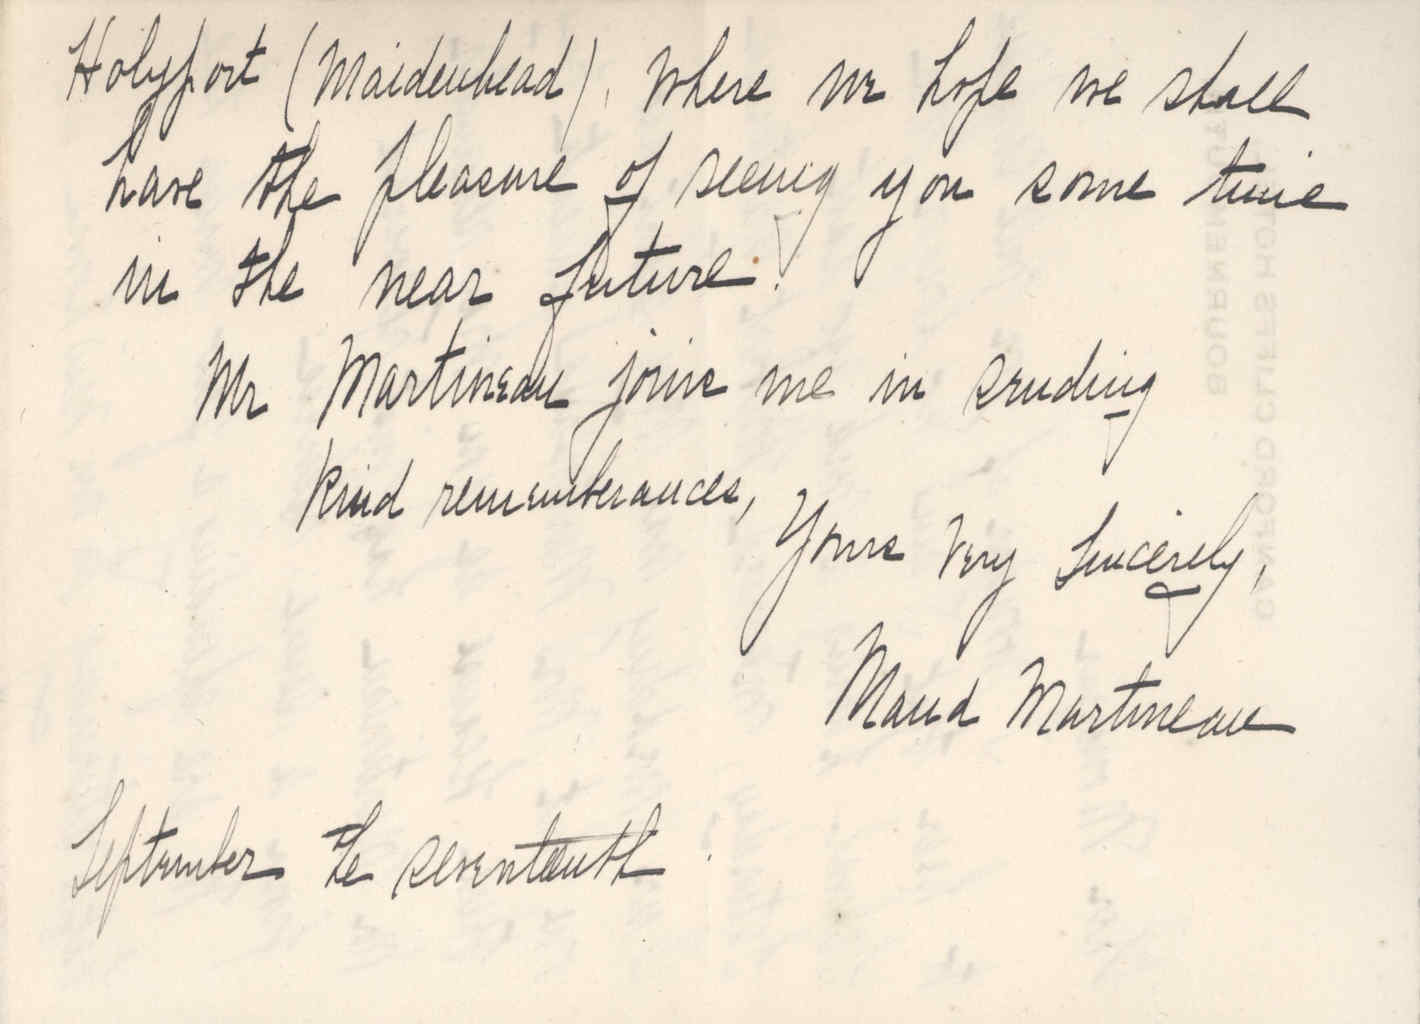 Holyport (Maidenhead), where we hope we shall
have the pleasure of seeing you some time
in the near future.
Mr Martineau joins me in sending
kind rememberances,
Yours Very Sincerely,
Maud Martineau
September the seventeenth.
CANFORD CLIFFS HOTEL
BOURNEMOUTH